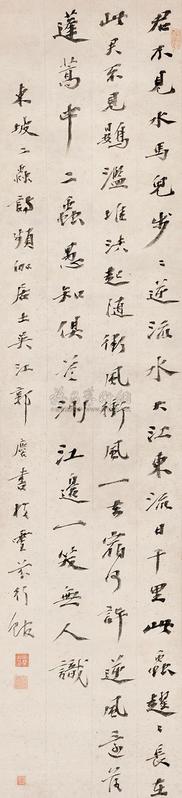 君不見水馬兒步々逆流水大江東流日千里此蟲趯々長在
此君不見鷃濫堆決起隨衝風衝風一去宿何許逆風還落
蓬蒿中二蟲愚知俱莫測江邊一笑無人識
東坡二蟲詩頻伽居士吳江郭麐書於靈芬行館